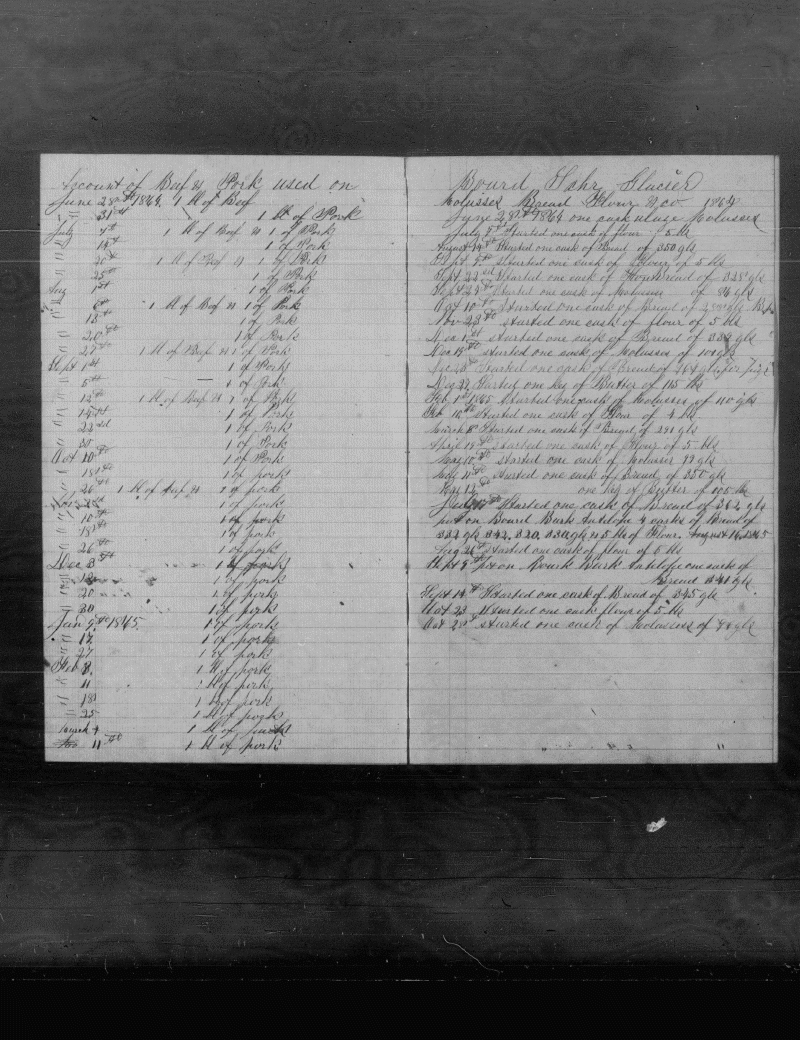 Account of Beef & Pork used on
June 28th 1864. 1 bl of Beef
" 31st 1 bl of Pork
July 4th 1 bl of Beef & 1 of Pork
" 14th 1 of Pork
" 20th 1 bl of Beef & 1 of Pork
" 25th 1 of Pork
Aug 1st 1 of Pork
" 6th 1 bl of Beef & 1 of Pork
" 13th 1 of Pork
" 20th 1 of Pork
" 27th 1 bl of Beef & 1 of Pork
Sept 1st 1 of Pork
" 5th 1 of Pork
" 12th 1 bl of Beef & 1 of Pork
" 1 of Pork
" 22nd 1 of Pork
" 30 1 of Pork
Oct 10th 1 of Pork
" 18th 1 of pork
" 26th 1 bl of beef & 1 of pork
Nov 1 of pork
" 10th 1 of pork
" 18th 1 of pork
" 26th 1 of pork
Dec 3th 1 bl pork
" 12 1 of pork
" 20 1 of pork
" 30 1 of pork
Jan 1865. 1 of pork
" 17 1 of pork
" 27 1 of pork
Feb 8 1 bl of pork
" 11 bl of pork
" 18 1 bl of pork
" 25 1 bl of pork
March 4 1 bl of pork
11th 1 bl of pork
Board Glacier
Molasses Bread Flour & co 1864
June 28th 1864 one cask Molasses
July 8th Started one cask of flour 5 bls
August 14th Started one cask of Bread of 350 gls
Sept 5th Started one cask of Flour of 5 bls
Sept 22nd Started one cask of Bread of 328 gls
Sept 28th Started one cask of Molasses of 84 gls
Oct 10th Started one cask of Bread of gls
Nov 23th started one cask of flour of 5 bls
Dec 1st started one cask of Bread of gls
Dec 15th started one cask of Molasses of gls
Dec started one cask of Bread of
Started one keg of Butter of 115 lbs
Feb 1st 1865 Started one cask of Molasses of 110 gls
Feb 18th Started one cask of Flour of 4 bls
March 8 Started one cask of Bread of 291 gls
April 19th Started one cask of Flour of 5 bls
May 10th started one cask of Molasses 99 gls
started one cask of Bread of 350 gls
one keg of Butter of 105 lbs
Started one cask of Bread of 362 gls
put on Board Bark Antelope 4 casks of Bread of
332 gls 342, 320, 330 gls & 5 bls of Flour. August 16, 1865
Aug 26th started one cask of flour of 6 bls
Sept 9th put on Board Bark Antelope one cask of
Bread 341 gls
Sept 14th Started one cask of Bread of 345 gls
Oct 23 Started one cask flour of 5 bls
Oct 28th started one cask of Molasses of 98 gls